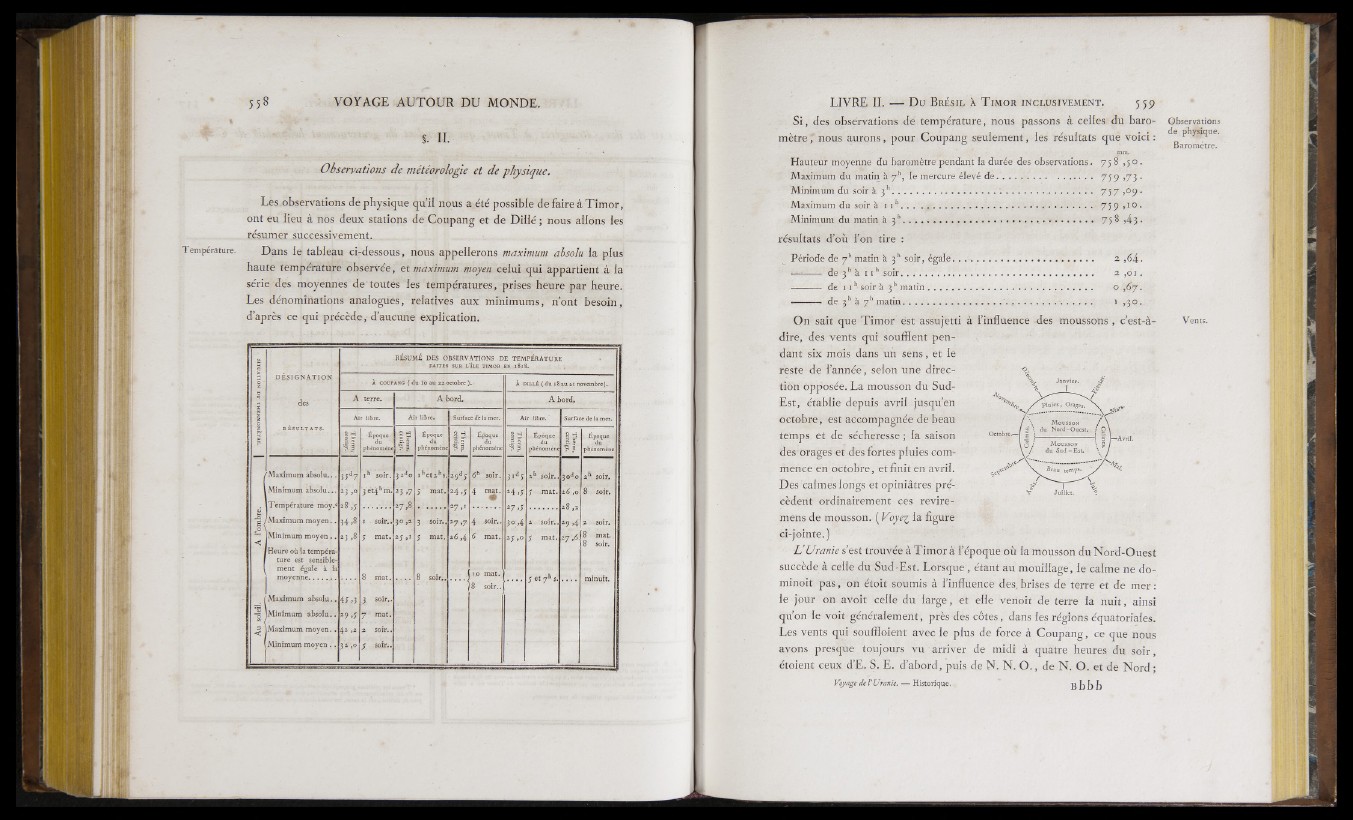 558 VOYAGE AUTOUR DU MONDE.
§. II.
Observations de météorologie et de physique.
Les observations de physique qu'il nous a été possible de faire à Timor,
ont eu lieu à nos deux stations de Coupang et de Dillé; nous allons les
résumer successivement.
Température.
Dans le tableau ci-dessous, nous appellerons maximum absolu la plus
haute température observée, et maximum moyen celui qui appartient à la
série des moyennes de toutes les températures, prises heure par heure.
Les dénominations analogues, relatives aux minimums, n'ont besoin,
d'après ce qui précède, d'aucune explication.
RÉSUMÉ DES OBSERVATIONS DE TEMPÉRATURE
FAITES SUR L'ÎLE TIMOR EN 1818.
DÉSIGNATION
des
RÉSULTATS.
À COUPANG (du 10 au 22 octobre). À DILLÉ (du 18 au 21 novembre).
A terre. A bord. A bord.
Air libre. Air libre. Surface de la mer. Air libre. Surface de la mer.
Therm. centigr. Époque du phénomène Therm. centigr. Époque du phénomène Therm. centigr. Époque du phénomène Therm. centigr. Époque du phénomène Therm. centigr. Époque du phénomène
A l'ombre.
Maximum absolu... 35d7 1h soir. 32d0 1h et 2h s. 29d5 6h soir. 31d5 2h soir. 30d0 2h soir.
Minimum absolu... 23,0 3 et 4h m. 23,7 5 mat. 24,5 4 mat. 24,5 5 mat. 26,0 8 soir.
Température moy.e 28,5 ...... 27,8 ...... 27,1 ...... 27,5 ...... 28,2
Maximum moyen.. 34,8 1 soir.. 30,2 3 soir.. 27,7 4 soir.. 30,4 2 soir.. 29,4 2 soir.
Minimum moyen.. 23,8 5 mat. 25,1 5 mat. 26,4 6 mat. 25,0 5 mat. 27,6 8 mat. 8 soir.
Heure où la tempéra-
ture est sensible-
ment égale à la
moyenne....... .... 8 mat. .... 8 soir.. .... 10 mat. 8 soir.. .... 5 et 7h s. .... minuit.
Au soleil.
Maximum absolu.. 45,3 3 soir..
Minimum absolu.. 29,5 7 mat.
Maximum moyen.. 42,2 2 soir..
Minimum moyen.. 32,0 5 soir..
LIVRE II. — DU BRÉSIL À TIMOR INCLUSIVEMENT. 559
Si, des observations de température, nous passons à celles du baro-
mètre, nous aurons, pour Coupang seulement, les résultats que voici:
Observations
de physique.
Baromètre.
mm.
Hauteur moyenne du baromètre pendant la durée des observations. 758,50.
Maximum du matin à 7h, le mercure élevé de................ 759,73.
Minimum du soir à 3h................ 757,09.
Maximum du soir à 11h................ 759,10.
Minimum du matin à 3h................ 758,43.
résultats d'où l'on tire:
Période de 7h matin à 3h soir, égale................ 2,64.
——— de 3h à 11h soir................ 2,01.
——— de 11h soir à 3h matin................ 0,67.
——— de 3h à 7h matin................ 1,30.
On sait que Timor est assujetti à l'influence des moussons, c'est-à-
Vents.
dire, des vents qui soufflent pen-
dant six mois dans un sens, et le
reste de l'année, selon une direc-
tion opposée. La mousson du Sud-
Est, établie depuis avril jusqu'en
octobre, est accompagnée de beau
temps et de sécheresse; la saison
des orages et des fortes pluies com-
mence en octobre, et finit en avril.
Des calmes longs et opiniâtres pré-
cèdent ordinairement ces revire-
mens de mousson. (Voyez la figure
ci-jointe.)
Décembre.
Janvier.
Février.
Novembre.
Pluies, Orages.
Mars.
Mousson
du Nord-Ouest.
Octobre.
Calmes.
Calmes.
Avril.
Mousson
du Sud-Est.
Septembre.
Beau temps.
Mai.
Août.
Juillet.
Juin.
L'Uranie s'est trouvée à Timor à l'époque où la mousson du Nord-Ouest
succède à celle du Sud-Est. Lorsque, étant au mouillage, le calme ne do-
minoit pas, on étoit soumis à l'influence des brises de terre et de mer:
le jour on avoit celle du large, et elle venoit de terre la nuit, ainsi
qu'on le voit généralement, près des côtes, dans les régions équatoriales.
Les vents qui souffloient avec le plus de force à Coupang, ce que nous
avons presque toujours vu arriver de midi à quatre heures du soir,
étoient ceux d'E. S. E. d'abord, puis de N. N. O., de N. O. et de Nord;
Voyage de l'Uranie. — Historique. Bbbb